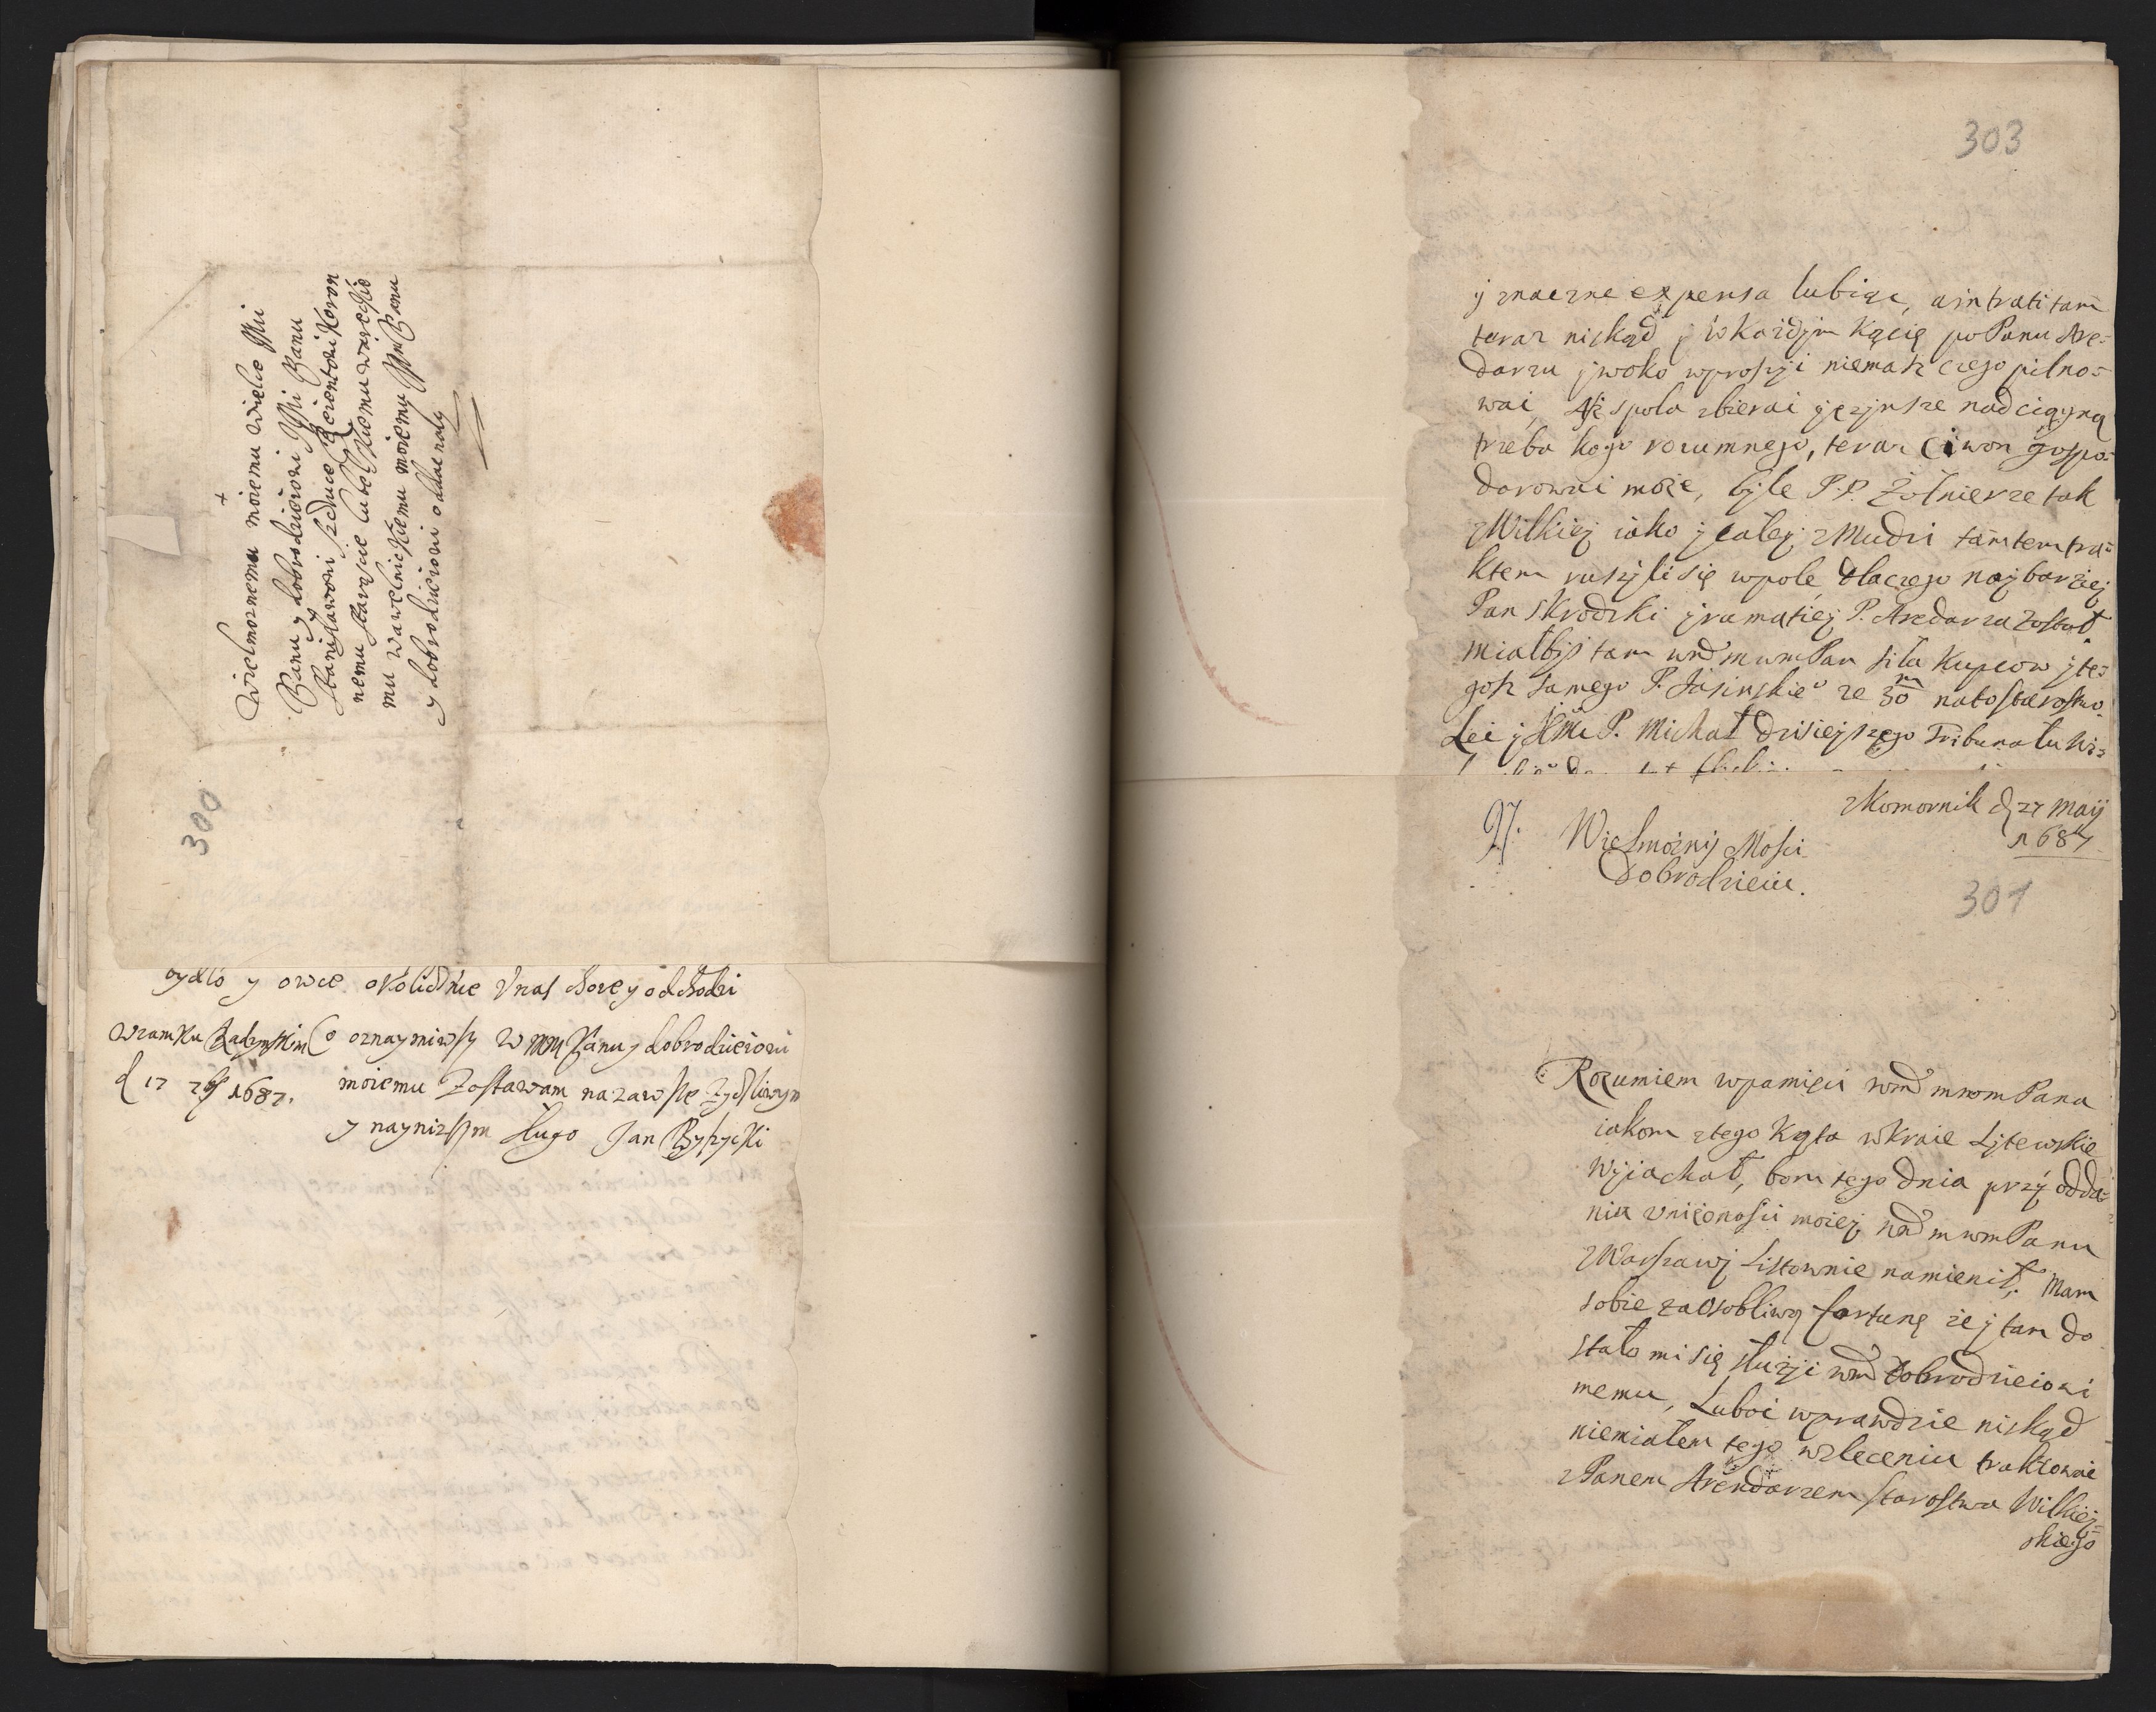 +
Wielmoznemu moiemu wielce Mci
Panu y dobrodzieiowi JMci Panu
Stanisławowi Szczuce Referentowi Koron
nemu staroscie Lubelskiemu wareckio
mu wawelnickiemu moiemu Mu Panu
y dobrodzieiowi oddac nalezy
300
bydło y owce okolicznie Vnas chore y odchodzi
w zamku Radzynskim Co oznaymiwszy W MM Panu y dobrodzieiowi
d 17 7bs 1687. moiemu Zostawam na zawsze zyczliwym
y nayniższym Sługo Jan
303
y znaczne expensa lubiąc, a intrati tam
teraz niskąd y w kazdym kącie po Panu Are=
darzu y w oko wprószyi niemasz czego pilno=
wai, Aże z pola zbierai y czynsze nadciągną
trzeba kogo rozumnego, teraz Ciwon gospo=
darowai może, byle P.P. Żołnierze tak
z Wilkiej iako y całey Zmudzi tamtem tra=
ktem ruszyli się w pole, dlaczego naybarziej
Pan Skrodzki y ramatiej P. Aredarza został
miałbys tam wmd mwm Pan siła kupcow y te=
gosz samego P. Jasinskiego ze 30 m na to starostwo.
Lec y Jemci P. Michał dzisieyszego Tribunału Wi=
z Komornik d 27 Maij
1687
97. Wielmożnij Mosci
Dobrodzieiu.
301
Rozumiem w pamięci wmd mwm Pana
iakom z tego kąta w kraie Lytewskie
wyjachał, bom tego dnia przy odda=
niu uniżonosci moiej nad mwm Panu
z Warszawy Listownie namienił. Mam
sobie za osobliwą fortunę że y tam do
stało mi się służyi wmd Dobrodzieiowi
memu, Luboi wprawdzie niskąd
niemiałem tego w zleceniu traktowai
z Panem Arendarzem starostwa Wilkiej=
skiego